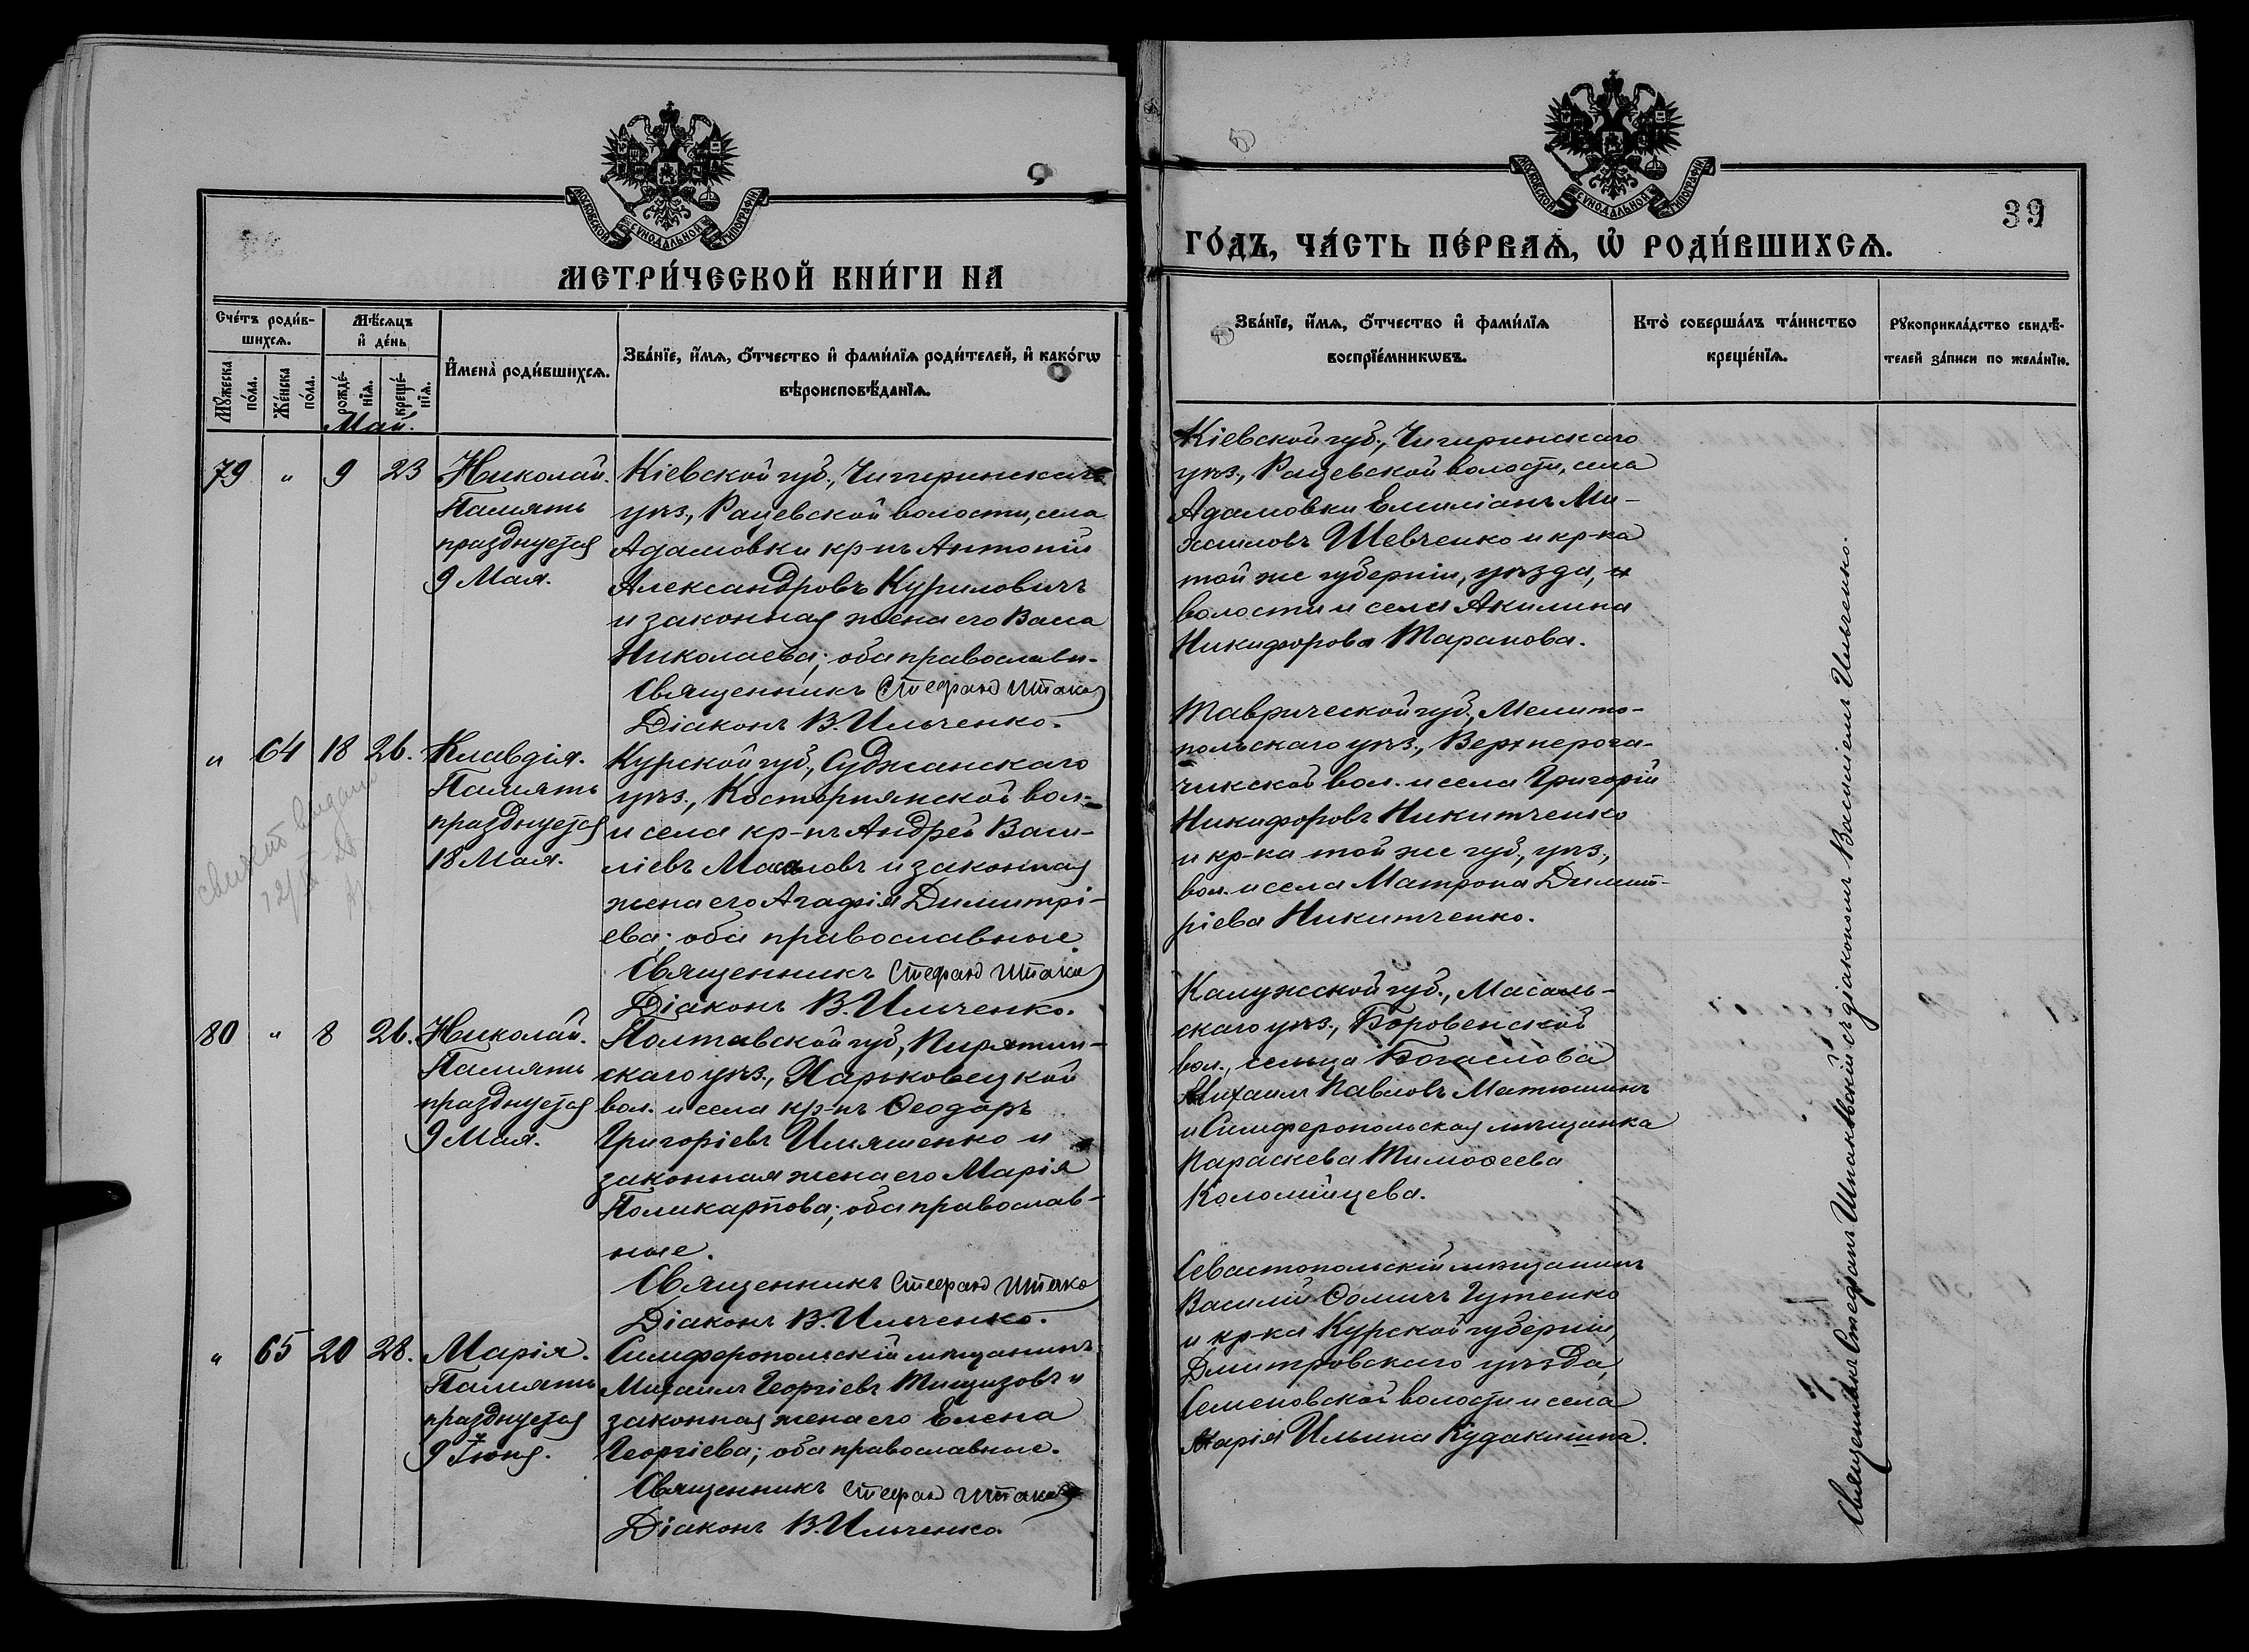 МОСКОВСКОЙ СУНОДАЛЬНОЙ ТИПОГРАФІИ
МЕТРИ́ЧЕСКОЙ КНИ́ГИ НА
Счéтъ роди́в-
шихсѧ.
Мѣ́сѧцъ
и҆ де́нь
Мꙋ́жеска
по́ла.
Же́нска
по́ла.
рожде́-
нїѧ.
креще́-
нїѧ.
И҆мена̀ роди́вшихсѧ.
Зва́нїе, и҆́мѧ, ѻ҆́тчество и҆ фами́лїѧ роди́телей, и҆ како́гѡ
вѣроисповѣ́данїѧ.
Май.
79 " 9 23 Николай.
Память
празднуется
9 Мая.
Кіевской губ., Чигиринскаго
уѣз., Рацевской волости, села
Адамовки кр-нъ Антоній
Александровъ Куриловичъ
и законная жена его Васса
Николаева; оба православн.
Священникъ Стефанъ Шпако
Діаконъ В. Ильченко.
" 64 18 26. Клавдія.
Память
празднуется
18 Мая.
Курской губ., Суджанскаго
уѣз., Косторнянской вол.
и села кр-нъ Андрей Васи-
ліевъ Масловъ и законная
жена его Агафія Димитрі-
ева; оба православные.
Священникъ Стефанъ Шпако
Діаконъ В. Ильченко.
80 " 8 26. Николай.
Память
празднуется
9 Мая.
Полтавской губ., Пирятин-
скаго уѣз., Харьковецкой
вол. и села кр-нъ Ѳеодоръ
Григоріевъ Ильяшенко и
законная жена его Марія
Поликарпова; оба православ-
ные.
Священникъ Стефанъ Шпако
Діаконъ В. Ильченко.
" 65 20 28. Марія.
Память
празднуется
9 Іюня.
Симферопольскій мѣщанинъ
Михаилъ Георгіевъ и
законная жена его Елена
Георгіева; оба православные.
Священникъ Стефанъ Шпако
Діаконъ В. Ильченко.
МОСКОВСКОЙ СУНОДАЛЬНОЙ ТИПОГРАФІИ
39
ГО́ДЪ, ЧА́СТЬ ПЕ́РВАѦ, Ѡ҆ РОДИ́ВШИХСѦ.
Зва́нїе, и҆́мѧ, ѻ҆́тчество и҆ фами́лїѧ
воспрїе́мникѡвъ.
Кто̀ соверша́лъ та́инство
креще́нїѧ.
Рꙋкоприкла́дство свидѣ́-
телей за́писи по жела́нїю.
Кіевской губ., Чигиринскаго
уѣз., Рацевской волости, села
Адамовки Емиліанъ Ми-
хаиловъ Шевченко и кр-ка
той же губерніи, уѣзда, и
волости и села Акилина
Никифорова Таранова.
Таврической губ., Мелито-
польскаго уѣз., Верхнерога-
чикской вол. и села Григорій
Никифоровъ Никитченко
и кр-ка той же губ., уѣз.,
вол. и села Матрона Димит-
ріева Никитченко.
Калужской губ., Масаль-
скаго уѣз., Боровенской
вол., сельца Богаслова
Михаилъ Павловъ Матюшинъ
и Симферопольская мѣщанка
Параскева Тимоѳеева
Коломійцева.
Севастопольскій мѣщанинъ
Василій Ѳомичъ Гутенко
и кр-ка Курской губерніи,
Дмитровскаго уѣзда,
Семеновской волости и села
Марія Ильина Кудакина.
Священникъ Стефанъ Шпаковскій съ діакономъ Василіемъ Ильченко.